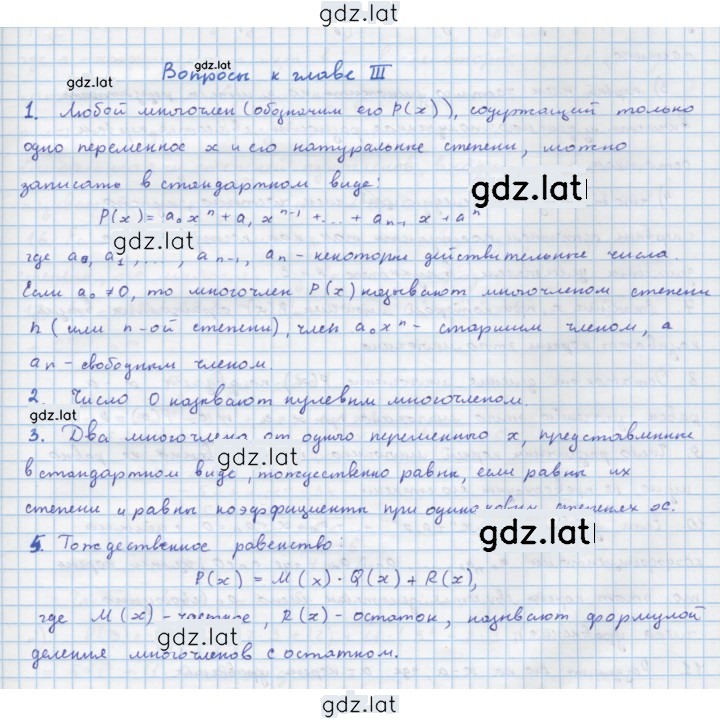 gdz.lat
Вопросы к главе III
gdz.lat
gdz.lat
1. Любой многочлен (обозначим его P(x)), содержащий только
одно переменное x и его натуральные степени, можно
записать в стандартном виде:
gdz.lat
P(x) = a₀xⁿ + a₁xⁿ⁻¹ + ... + aₙ₋₁x + aⁿ
gdz.lat
где a₀, a₁, ..., aₙ₋₁, aₙ - некоторые действительные числа.
Если a₀ ≠ 0, то многочлен P(x) называют многочленом степени
n (или n-ой степени), член a₀xⁿ - старшим членом, а
aₙ - свободным членом.
2. Число 0 называют нулевым многочленом.
gdz.lat
3. Два многочлена от одного переменного x, представленные
gdz.lat
в стандартном виде, тождественно равны, если равны их
степени и равны коэффициенты при одинаковых степенях x.
gdz.lat
5. Тождественное равенство:
P(x) = M(x) · Q(x) + R(x),
где M(x) - частное, R(x) - остаток, называют формулой
gdz.lat
деления многочленов с остатком.
gdz.lat